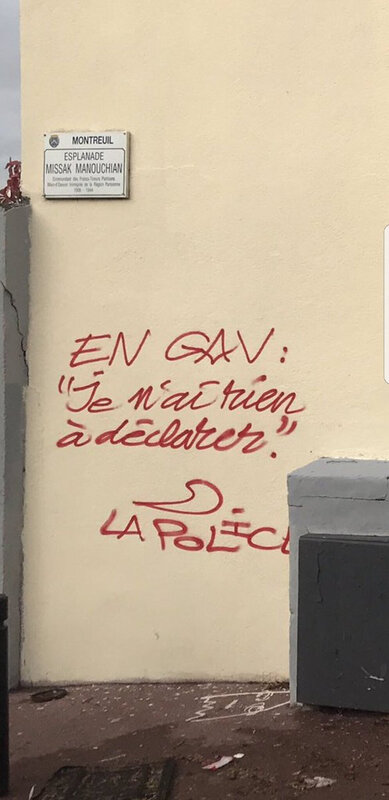 MONTREUIL
ESPLANADE
MISSAK MANOUCHIAN
Commandant des Francs-Tireurs Partisans
Main-d'Oeuvre Immigrée de la Région Parisienne
1906 - 1944
EN GAV :
"Je n'ai rien
à déclarer."
LA POLIC